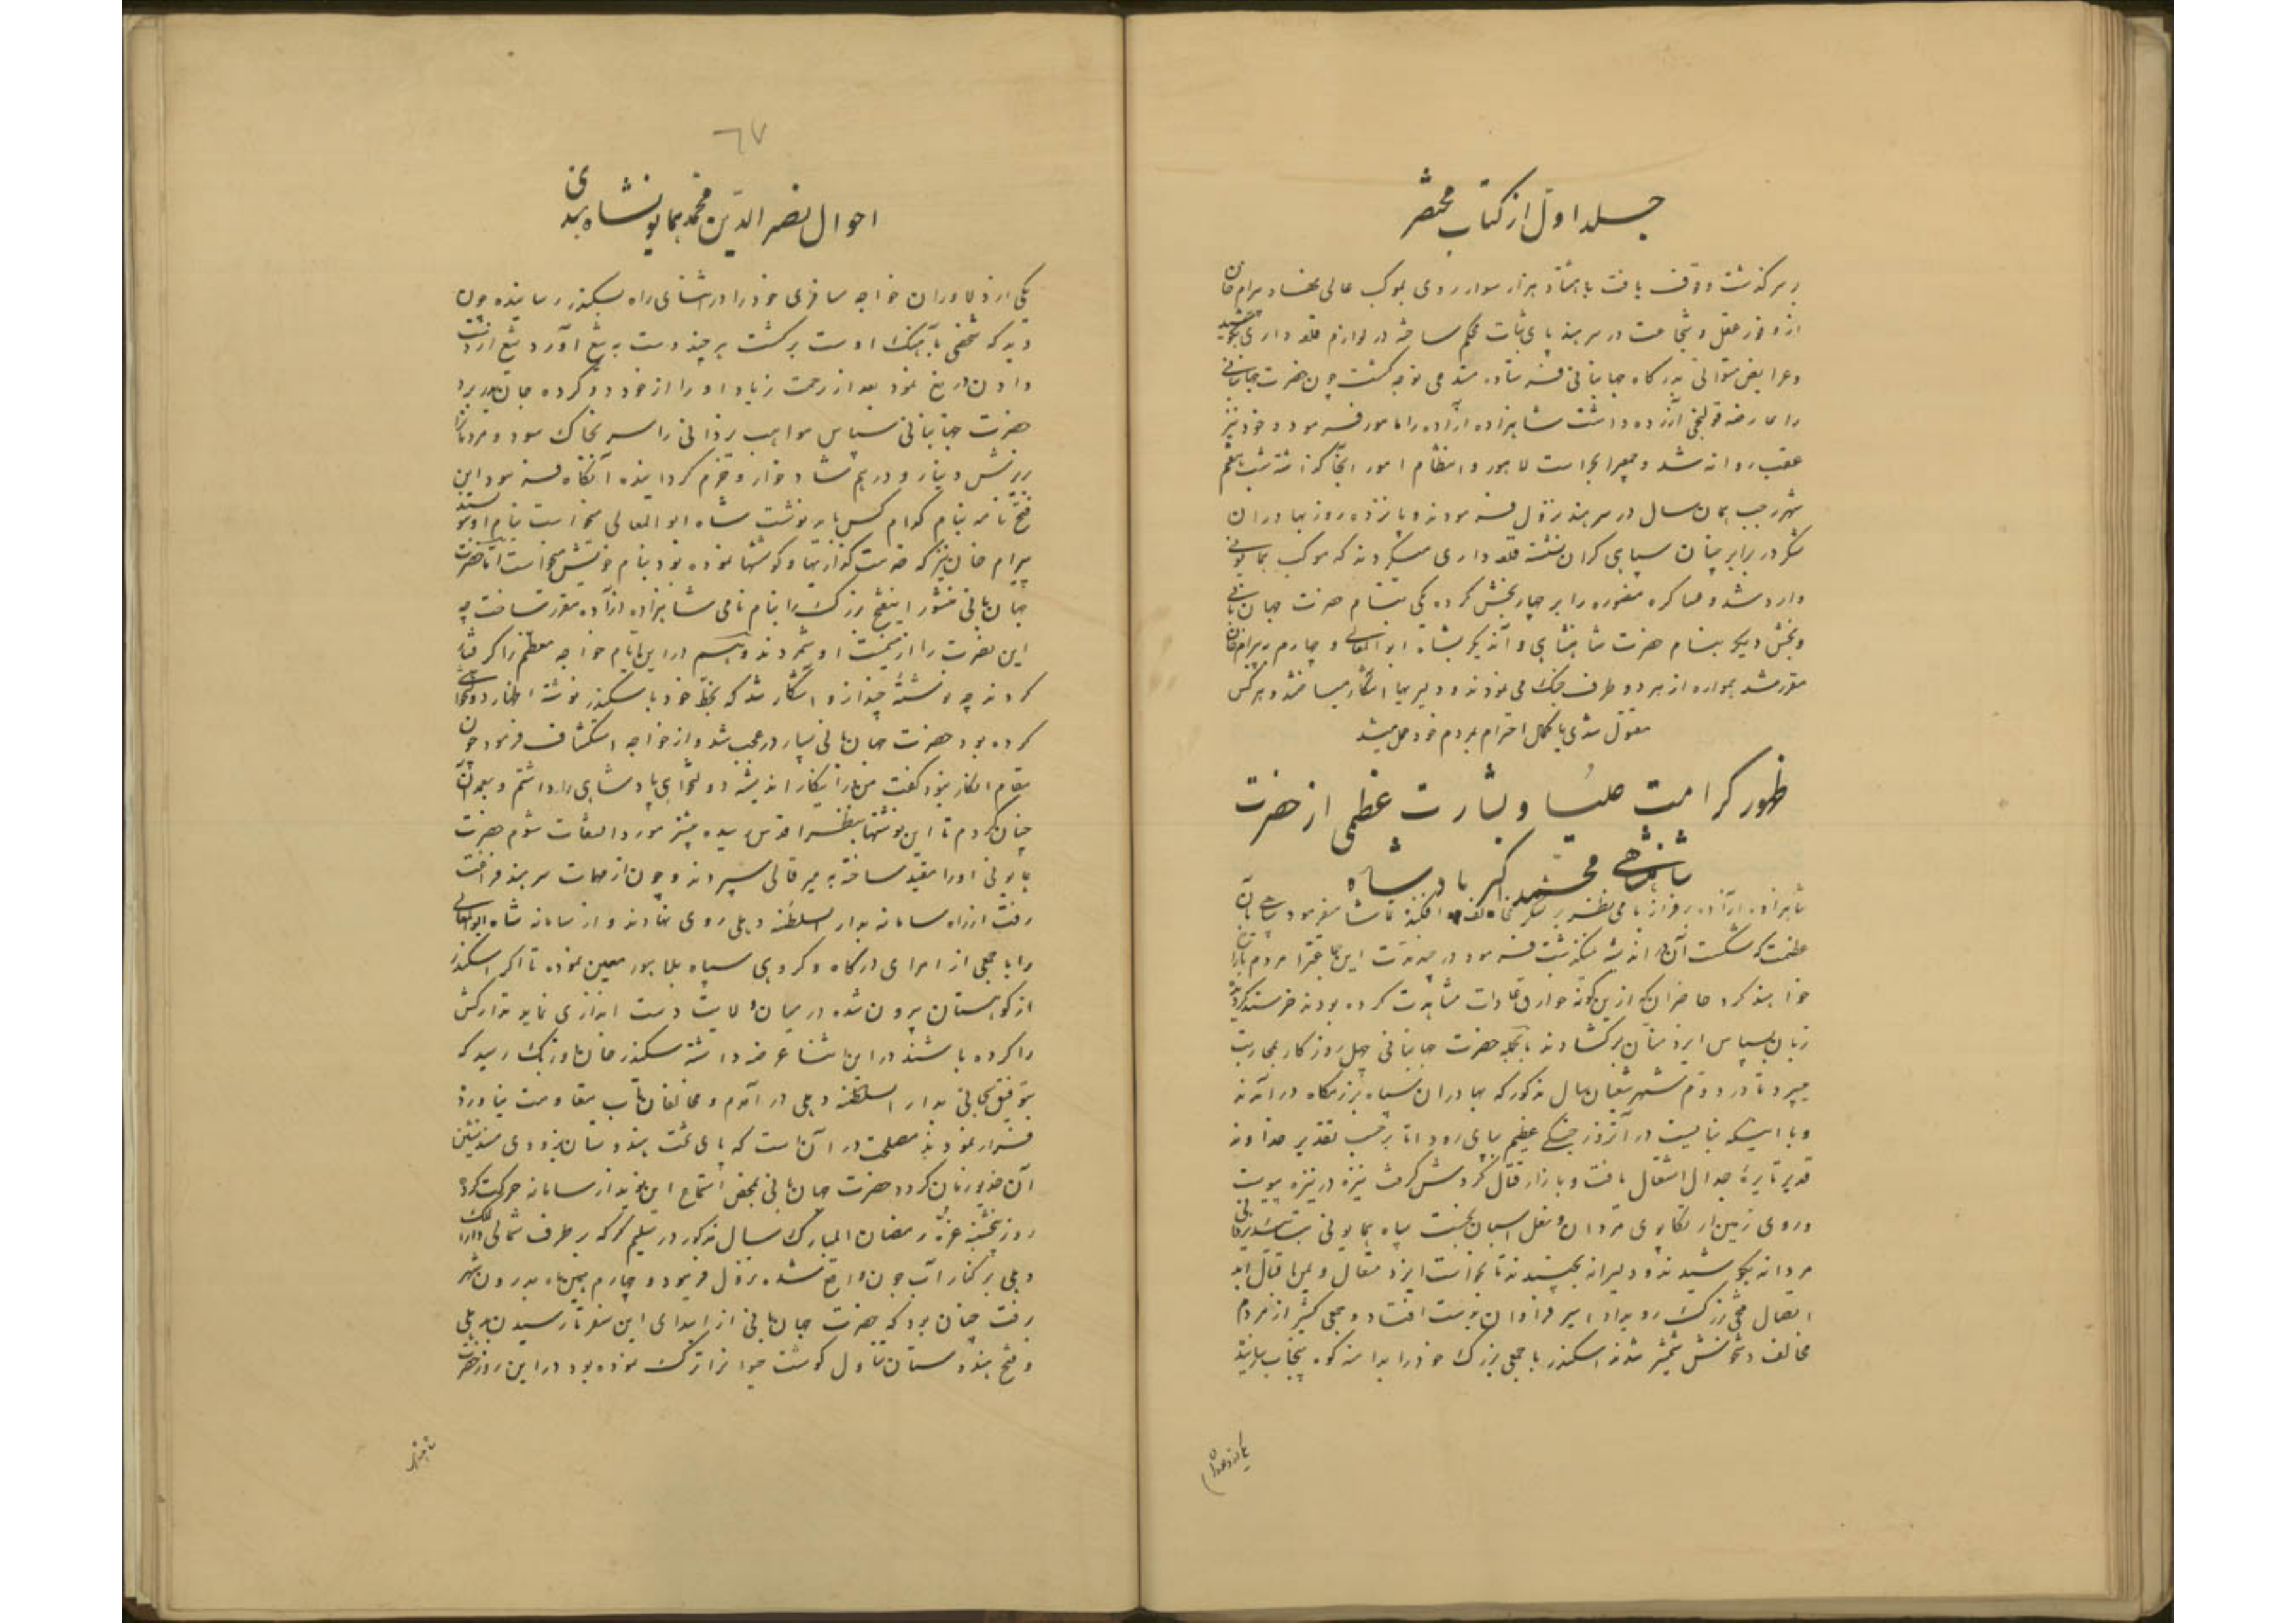 جلد اوّل از کتاب مختصر
بر سرگذشت وقوف یافت با هشتاد هزار سوار روی بموکب عالی نهاد بیرام خان
از وفور عقل و شجاعت در سرهند پای ثبات محکم ساخته در لوازم قلعه داری کوشید
و عرایض متوالی بدرگاه جهانبانی فرستاده مستدعی توجه گشت چون حضرت جهانبانی
را عارضه قولنجی آزرده داشت شاهزاده آزاده را مامور فرمود و خود نیز
عقب روانه شد و جمعی را بحراست لاهور و انتظام امور آنجا گذاشته شب هفتم
شهر رجب همان سال در سرهند نزول فرمودند و پانزده روز بهادران
لشکر در برابر چنان سپاهی گران نشسته قلعه داری میکردند که موکب همایونی
وارد شد و عساکر منصوره را بر چهار بخش کرده یکی بنام حضرت جهان بانی
و بخش دیگر بنام حضرت شاهنشاهی و آندیگر بشاه ابوالمعالی و چهارم ببیرام خان
مقرر شد همواره از هر دو طرف جنک می نمودند و دلیریها آشکار میساختند و هر کس
مقتول شدی با کمال احترام بمردم خود میشد
ظهور کرامت علیا و بشارت عظمی از حضرت
شاهنشاهی محمد اکبر بادشاه
شاهزاده آزاده بر فراز بامی نظر بر لشکر مخالف افکنده تماشا میفرمود سپاهی بآن
عظمت که شکست آن در اندیشه نمیگذشت فرمود در چه مدت این جماعت را مردم ما
خواهند کرد حاضران که ازین گونه خوارق عادات مشاهدت کرده بودند خرسند گردیده
زبان بسپاس ایزد منان برگشادند بالجمله حضرت جهانبانی چهل روز کار بمحاربت
میبرد تا در دوم شهر شعبان سال مذکور که بهادران سپاه برزمگاه در آمدند
و با اینکه نبایست در آنروز جنگی عظیم بپای رود اما بر حسب تقدیر خداوند
قدیر نایره جدال اشتعال یافت و بازار قتال گردش گرفت نیزه در نیزه پیوست
و روی زمین از تکاپوی مردان و نعل اسبان سپاه همایونی
مردانه بکوشیدند و دلیرانه بجنبیدند تا بخواست ایزد متعال و یمن اقبال ابد
اتصال فتحی بزرک رو بداد اسیر فراوان بدست افتاد و جمعی کثیر از مردم
مخالف دستخوش شمشیر شدند اسکندر با جمعی بزرک خود را بدامنه کوه پنجاب رسانید
یکی از دلاوران
٦٧
احوال نصیر الدین محمد همایونشاه هندی
یکی از دلاوران خواجه مسافری خود را در اثنای راه بسکندر رسانیده چون
دید که شخصی بآهنک اوست برگشت هر چند دست به تیغ آورد تیغ از دست
دادن دریغ نمود بعد از زحمت زیاد او را از خود دور کرده جان بدر برد
حضرت جهانبانی سپاس مواهب یزدانی را سر بخاک سود و مردمانرا
ریزش دینار و درهم شادخوار و خرم گردانیده آنگاه فرمود این
فتح نامه بنام کدام کس باید نوشت شاه ابو المعالی میخواست بنام او نویسند
بیرام خان نیز که خدمت گذاریها و کوششها نموده بود بنام خویش میخواست اما حضرت
جهان بانی منشور اینفتح بزرک را بنام نامی شاهزاده آزاده مقرر ساخت چه
این نصرت را از میمنت او شمردند و هم در این ایام خواجه معظم را گرفتار
کردند چه نوشته چند از او آشکار شد که بخط خود با سکندر نوشته اظهار دولتخواهی
کرده بود حضرت جهان بانی بسیار در عجب شد و از خواجه استکشاف فرمود چون
مقام انکار نبود گفت من در اینکار اندیشه دولتخواهی پادشاهی را داشتم و بعمد آن
چنان کردم تا این نوشتها بنظر اقدس رسیده بیشتر مورد التفات شوم حضرت
همایونی او را مقید ساخته به میر قالی سپردند و چون از مهمات سرهند فراغت
رفت از راه سامانه بدار السلطنه دهلی روی نهادند و از سامانه شاه ابو المعالی
را با جمعی از امرای درگاه و گروهی سپاه بلاهور معین نموده تا اگر اسکندر
از کوهستان بیرون شده در میان ولایت دست اندازی نماید تدارکش
را کرده باشند در این اثنا عرضه داشته سکندر خان اوزبک رسید که
بتوفیق سبحانی بدار السلطنه دهلی در آمدم و مخالفان تاب مقاومت نیاورده
فرار نمودند مصلحت در آن است که پای تخت هندوستان بزودی مسند نشین
آن خدیو زمان گردد حضرت جهان بانی بمحض استماع این نوید از سامانه حرکت کرده
روز پنجشنبه غره رمضان المبارک سال مذکور در سلیم گره که بر طرف شمالی دارالملک
دهلی بر کنار آب جون واقع شده نزول فرمود و چهارم همین ماه بدرون شهر
رفت چنان بود که حضرت جهان بانی از ابتدای این سفر تا رسیدن بدهلی
و فتح هندوستان تناول گوشت حیوانرا ترک نموده بود در این روز حضرت